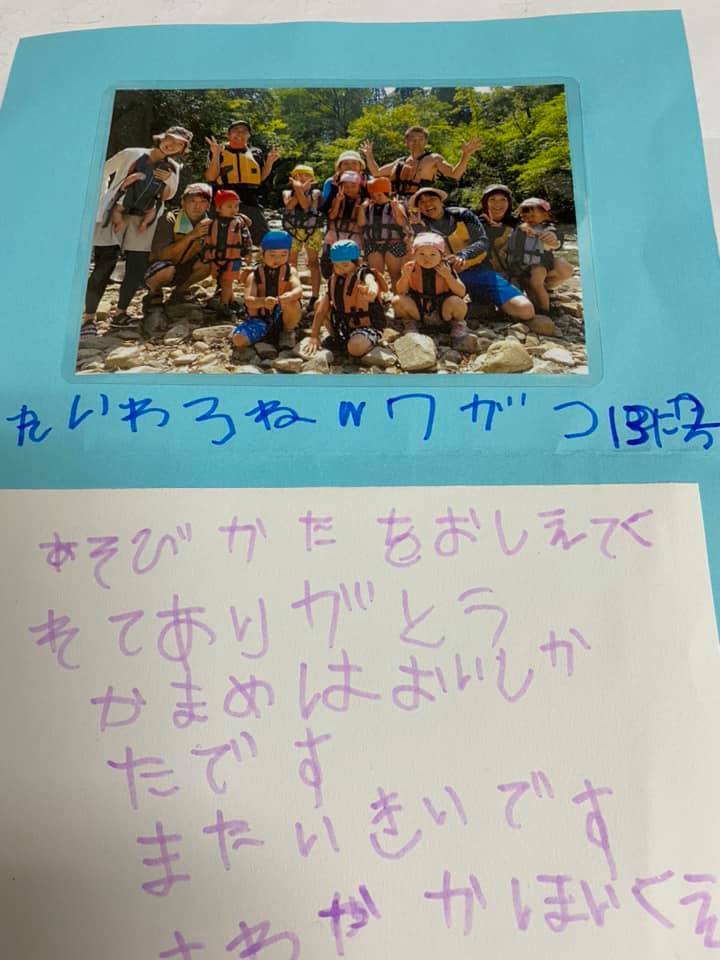 たいわろね 7がつ
あそびかたをおしえてく
れてありがとう
かまめはおいしか
たです
またいきいです
ほいくえ